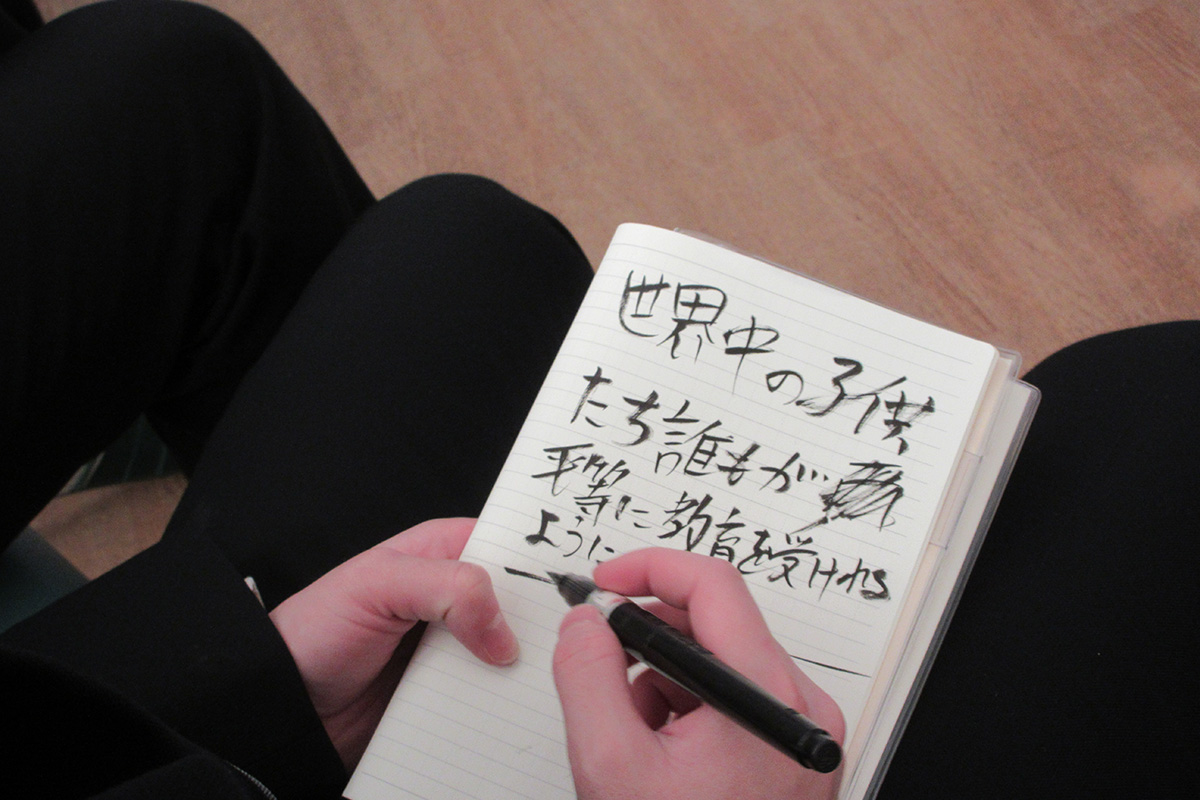 世界中の子供
たち誰もが
平等に教育を受けれる
ように